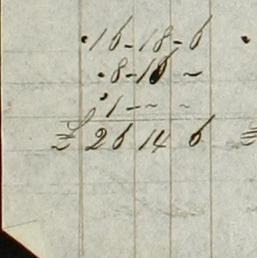 16-18-6
8-16 ~
1-~ ~
£ 26 14 6